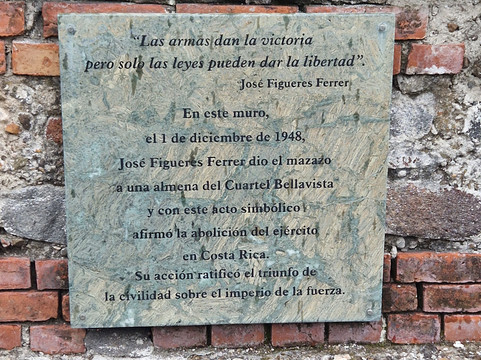 “Las armas dan la victoria
pero solo las leyes pueden dar la libertad”.
José Figueres Ferrer
En este muro,
el 1 de diciembre de 1948,
José Figueres Ferrer dio el mazazo
a una almena del Cuartel Bellavista
y con este acto simbólico
afirmó la abolición del ejército
en Costa Rica.
Su acción ratificó el triunfo de
la civilidad sobre el imperio de la fuerza.